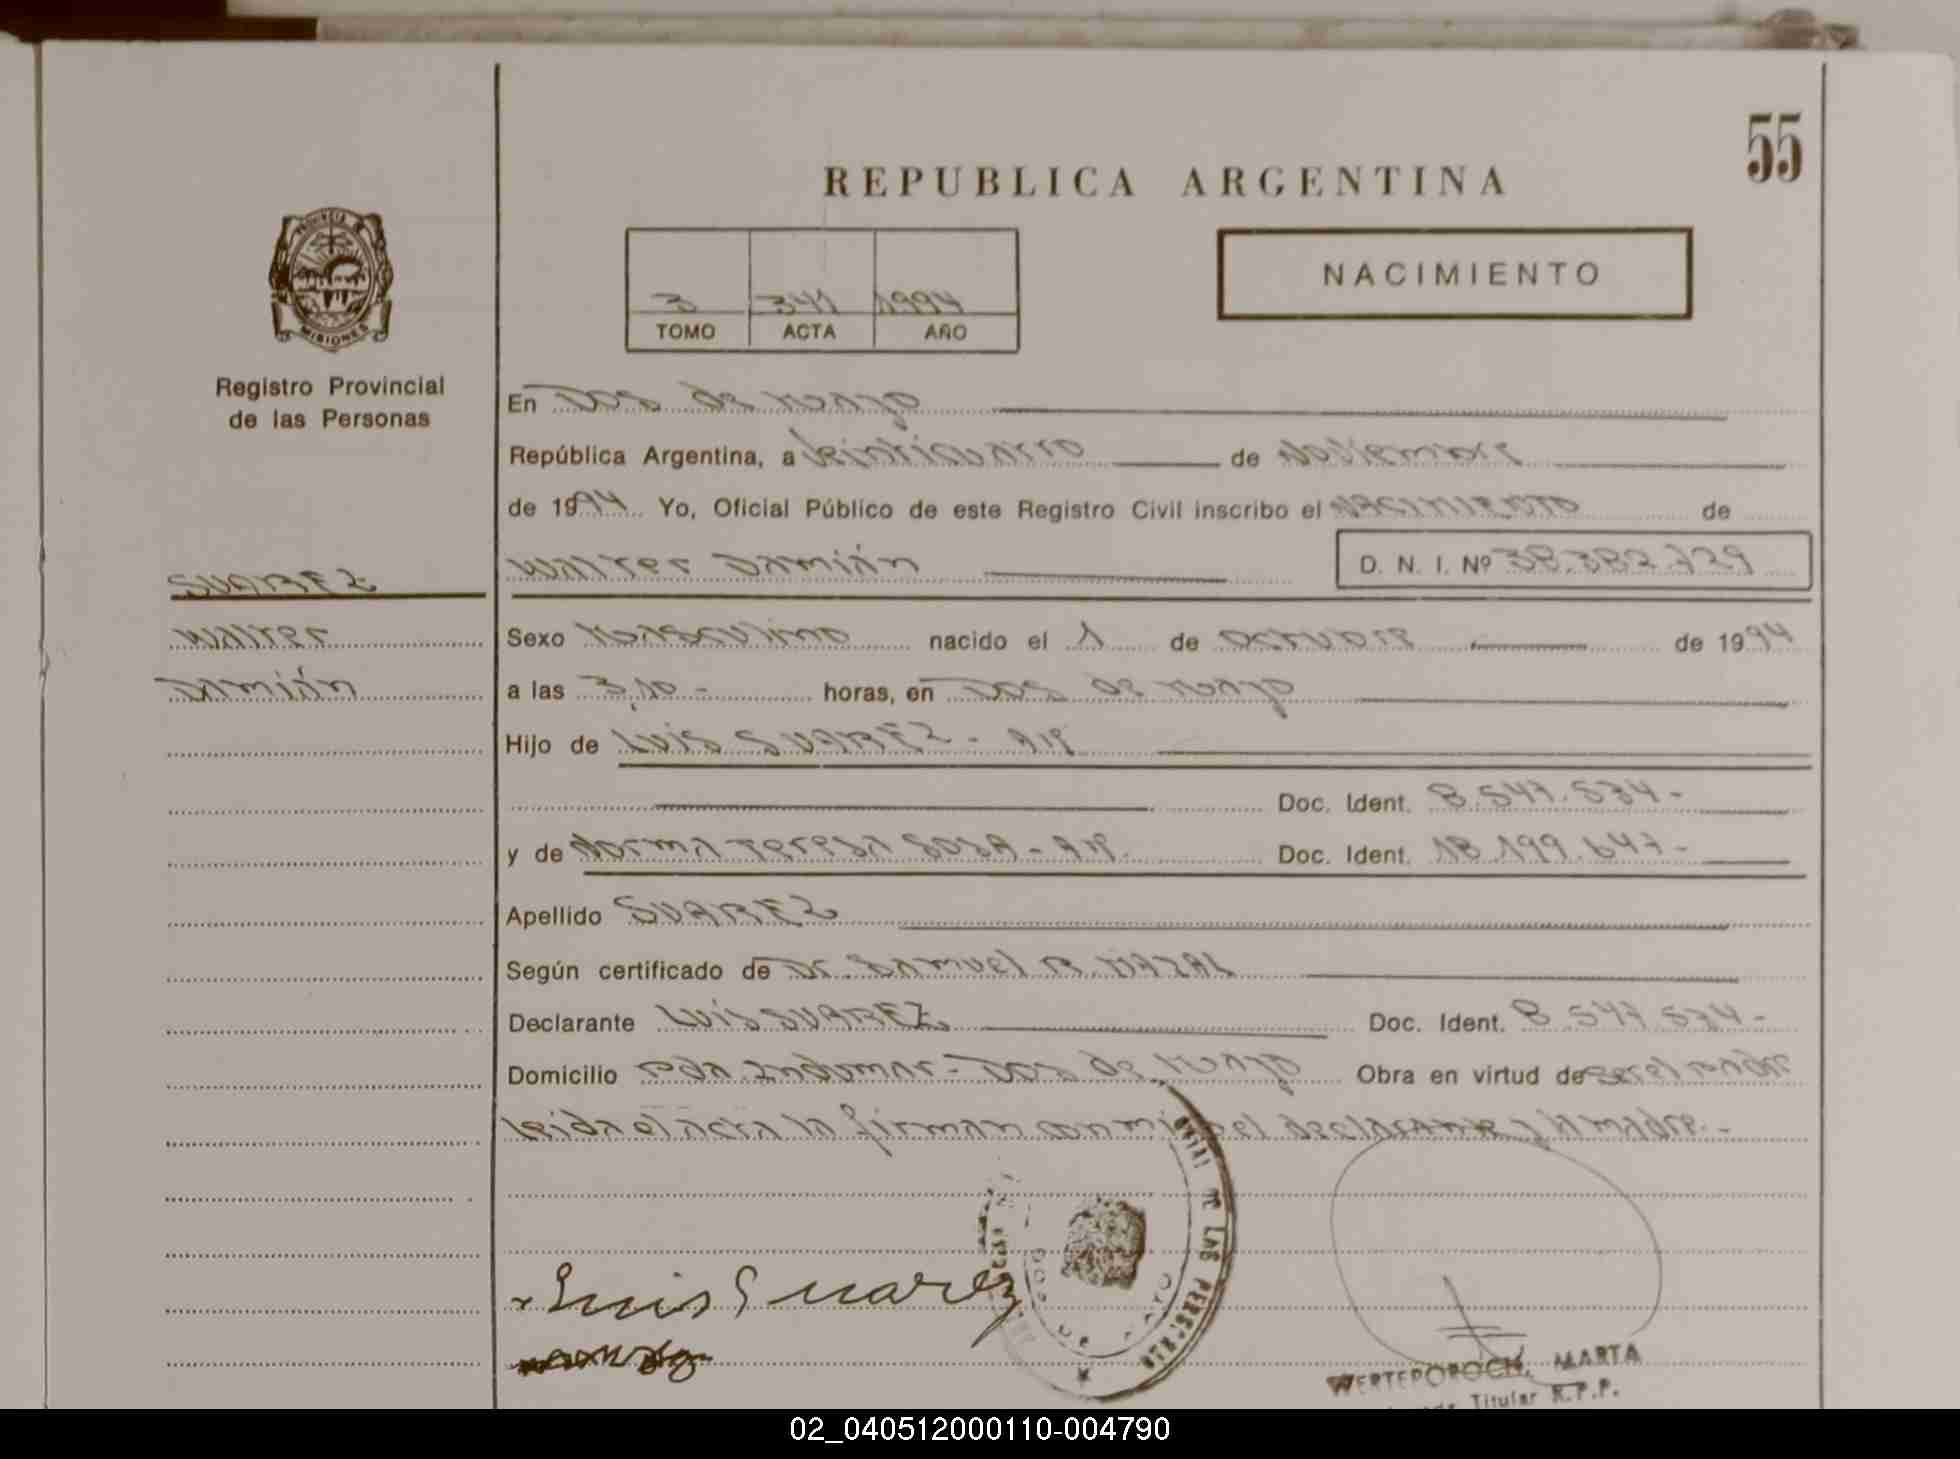 55
REPUBLICA ARGENTINA
PROVINCIA DE
MISIONES
Registro Provincial
de las Personas
NACIMIENTO
3 341 1994
TOMO ACTA AÑO
En Dos de Mayo
República Argentina, a Veinticuatro de Noviembre
de 1994 Yo, Oficial Público de este Registro Civil inscribo el NACIMIENTO de
Walter Damián D. N. I. Nº 38.382.729
SUAREZ
Walter
Damián
Sexo Masculino nacido el 1 de octubre de 1994
a las 3,10 - horas, en Dos de Mayo
Hijo de LUIS SUAREZ -
Doc. Ident. 8.547.534 -
y de Norma Teresa SOSA - Doc. Ident. 18.199.647 -
Apellido SUAREZ
Según certificado de Dr. Samuel MAZAL
Declarante LUIS SUAREZ Doc. Ident. 8.547.534 -
Domicilio Dos de Mayo Obra en virtud de ser el padre
Leida el acta la firman conmigo el declarante y la madre. -
Luis Suarez
DE LAS PERSONAS
DOS DE MAYO
WERTEPOROCH, MARTA
Titular R.P.P.
02_040512000110-004790